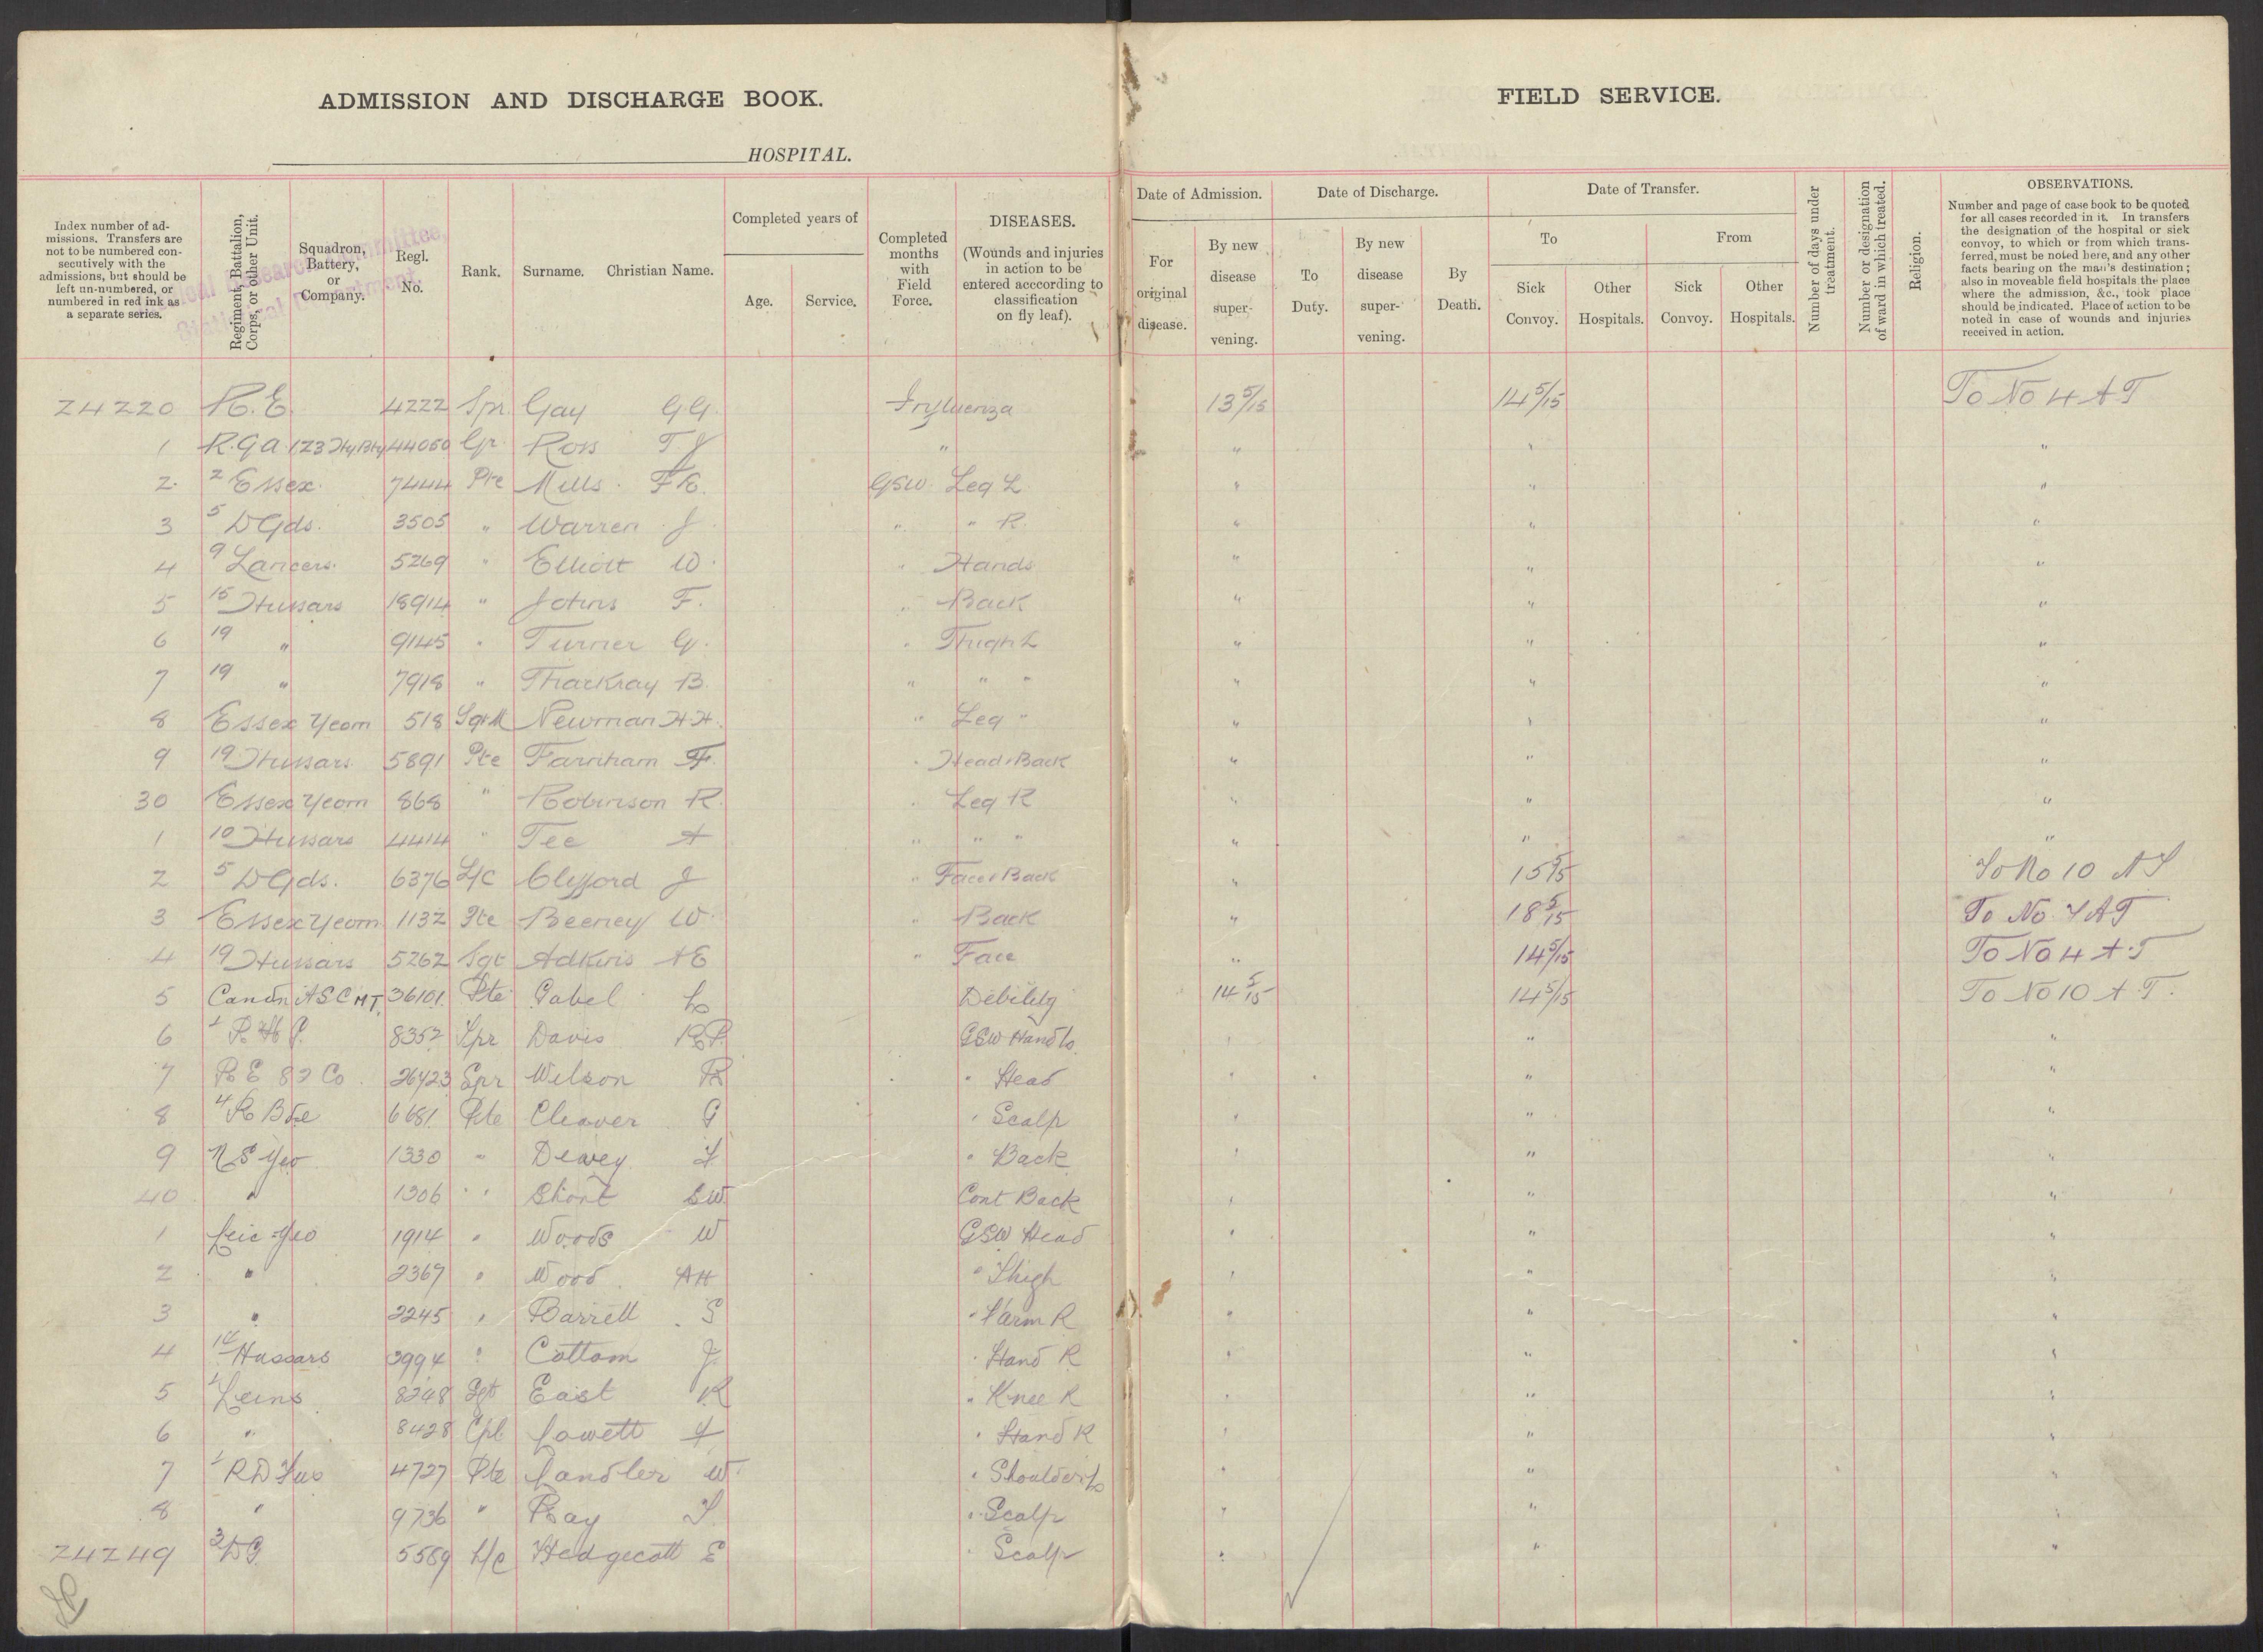 ADMISSION AND DISCHARGE BOOK.
HOSPITAL.
FIELD SERVICE.
Index number of admissions. Transfers are not to be numbered consecutively with the admissions, but should be left un-numbered, or numbered in red ink as a separate series.
Regiment, Battalion, Corps, or other Unit.
Squadron, Battery, or Company.
Regl. No.
Rank.
Surname. Christian Name.
Completed years of
Age.
Service.
Completed months with Field Force.
DISEASES.
(Wounds and injuries in action to be entered acccording to classification on fly leaf).
Date of Admission.
For original disease.
By new disease supervening.
Date of Discharge.
To Duty.
By new disease supervening.
By Death.
Date of Transfer.
To
Sick Convoy.
Other Hospitals.
From
Sick Convoy.
Other Hospitals.
Number of days under treatment.
Number or designation of ward in which treated.
Religion.
OBSERVATIONS.
Number and page of case book to be quoted for all cases recorded in it. In transfers the designation of the hospital or sick convoy, to which or from which transferred, must be noted here, and any other facts bearing on the man's destination; also in moveable field hospitals the place where the admission, &c., took place should be indicated. Place of action to be noted in case of wounds and injuries received in action.
24220 R.E. 4222 Spr. Gay GG. Influenza 13 5/15 14 5/15 To No 4 AT
1 R.G.A 123 Hy Bty 44050 Gr. Ross T J " " " "
2 2 Essex. 7444 Pte Mills. F E. GSW Leg L " " "
3 5 D Gds. 3505 " Warren J " " R. " " "
4 9 Lancers. 5269 " Elliott W. " Hands " " "
5 15 Hussars 18914 " Johns F. " Back " " "
6 19 " 9145 " Turner G. " Thigh L " " "
7 19 " 7918 " Thackray B. " " " " " "
8 Essex Yeom 518 Sgt M Newman H.H. " Leg " " " "
9 19 Hussars 5891 Pte Farnham F. " Head & Back " " "
30 Essex Yeom 868 " Robinson R. " Leg R " " "
1 10 Hussars 4414 " Tee A " " " " " "
2 5 D Gds. 6376 L/C Clifford J " Face & Back " 15 5/15 To No 10 AT
3 Essex Yeom 1132 Pte Beeney W. " Back " 18 5/15 To No 7 AT
4 19 Hussars 5262 Sgt Adkins AE " Face " 14 5/15 To No 4 A.T
5 Candn ASC MT. 36101. Pte Gabel L Debility 14 5/15 14 5/15 To No 10 A.T.
6 8352 Spr Davis GSW Hand L " " "
7 R E 82 Co. 26423 Spr Wilson R " Head " " "
8 4 R Bde 6681. Pte Cleaver G " Scalp " " "
9 N S Yeo 1330 " Dewey " Back " " "
40 " 1306 " Short SW Cont Back " " "
1 Leic Yeo 1914 " Woods W GSW Head " " "
2 " 2367 " Wood. AH " Thigh " " "
3 " 2245 " Barrett S " F arm R " " "
4 Hussars 3994 " Cottom J " Hand R " " "
5 Leins 8248 Sgt East R " Knee R " " "
6 " 8428 Cpl Lowett " Hand R " " "
7 R D Fus 4727 Pte Landler W. " Shoulder L " " "
8 " 9736 " Ray " Scalp " " "
24249 3 DG. 5589 L/C Hedgecott E " Scalp " " "